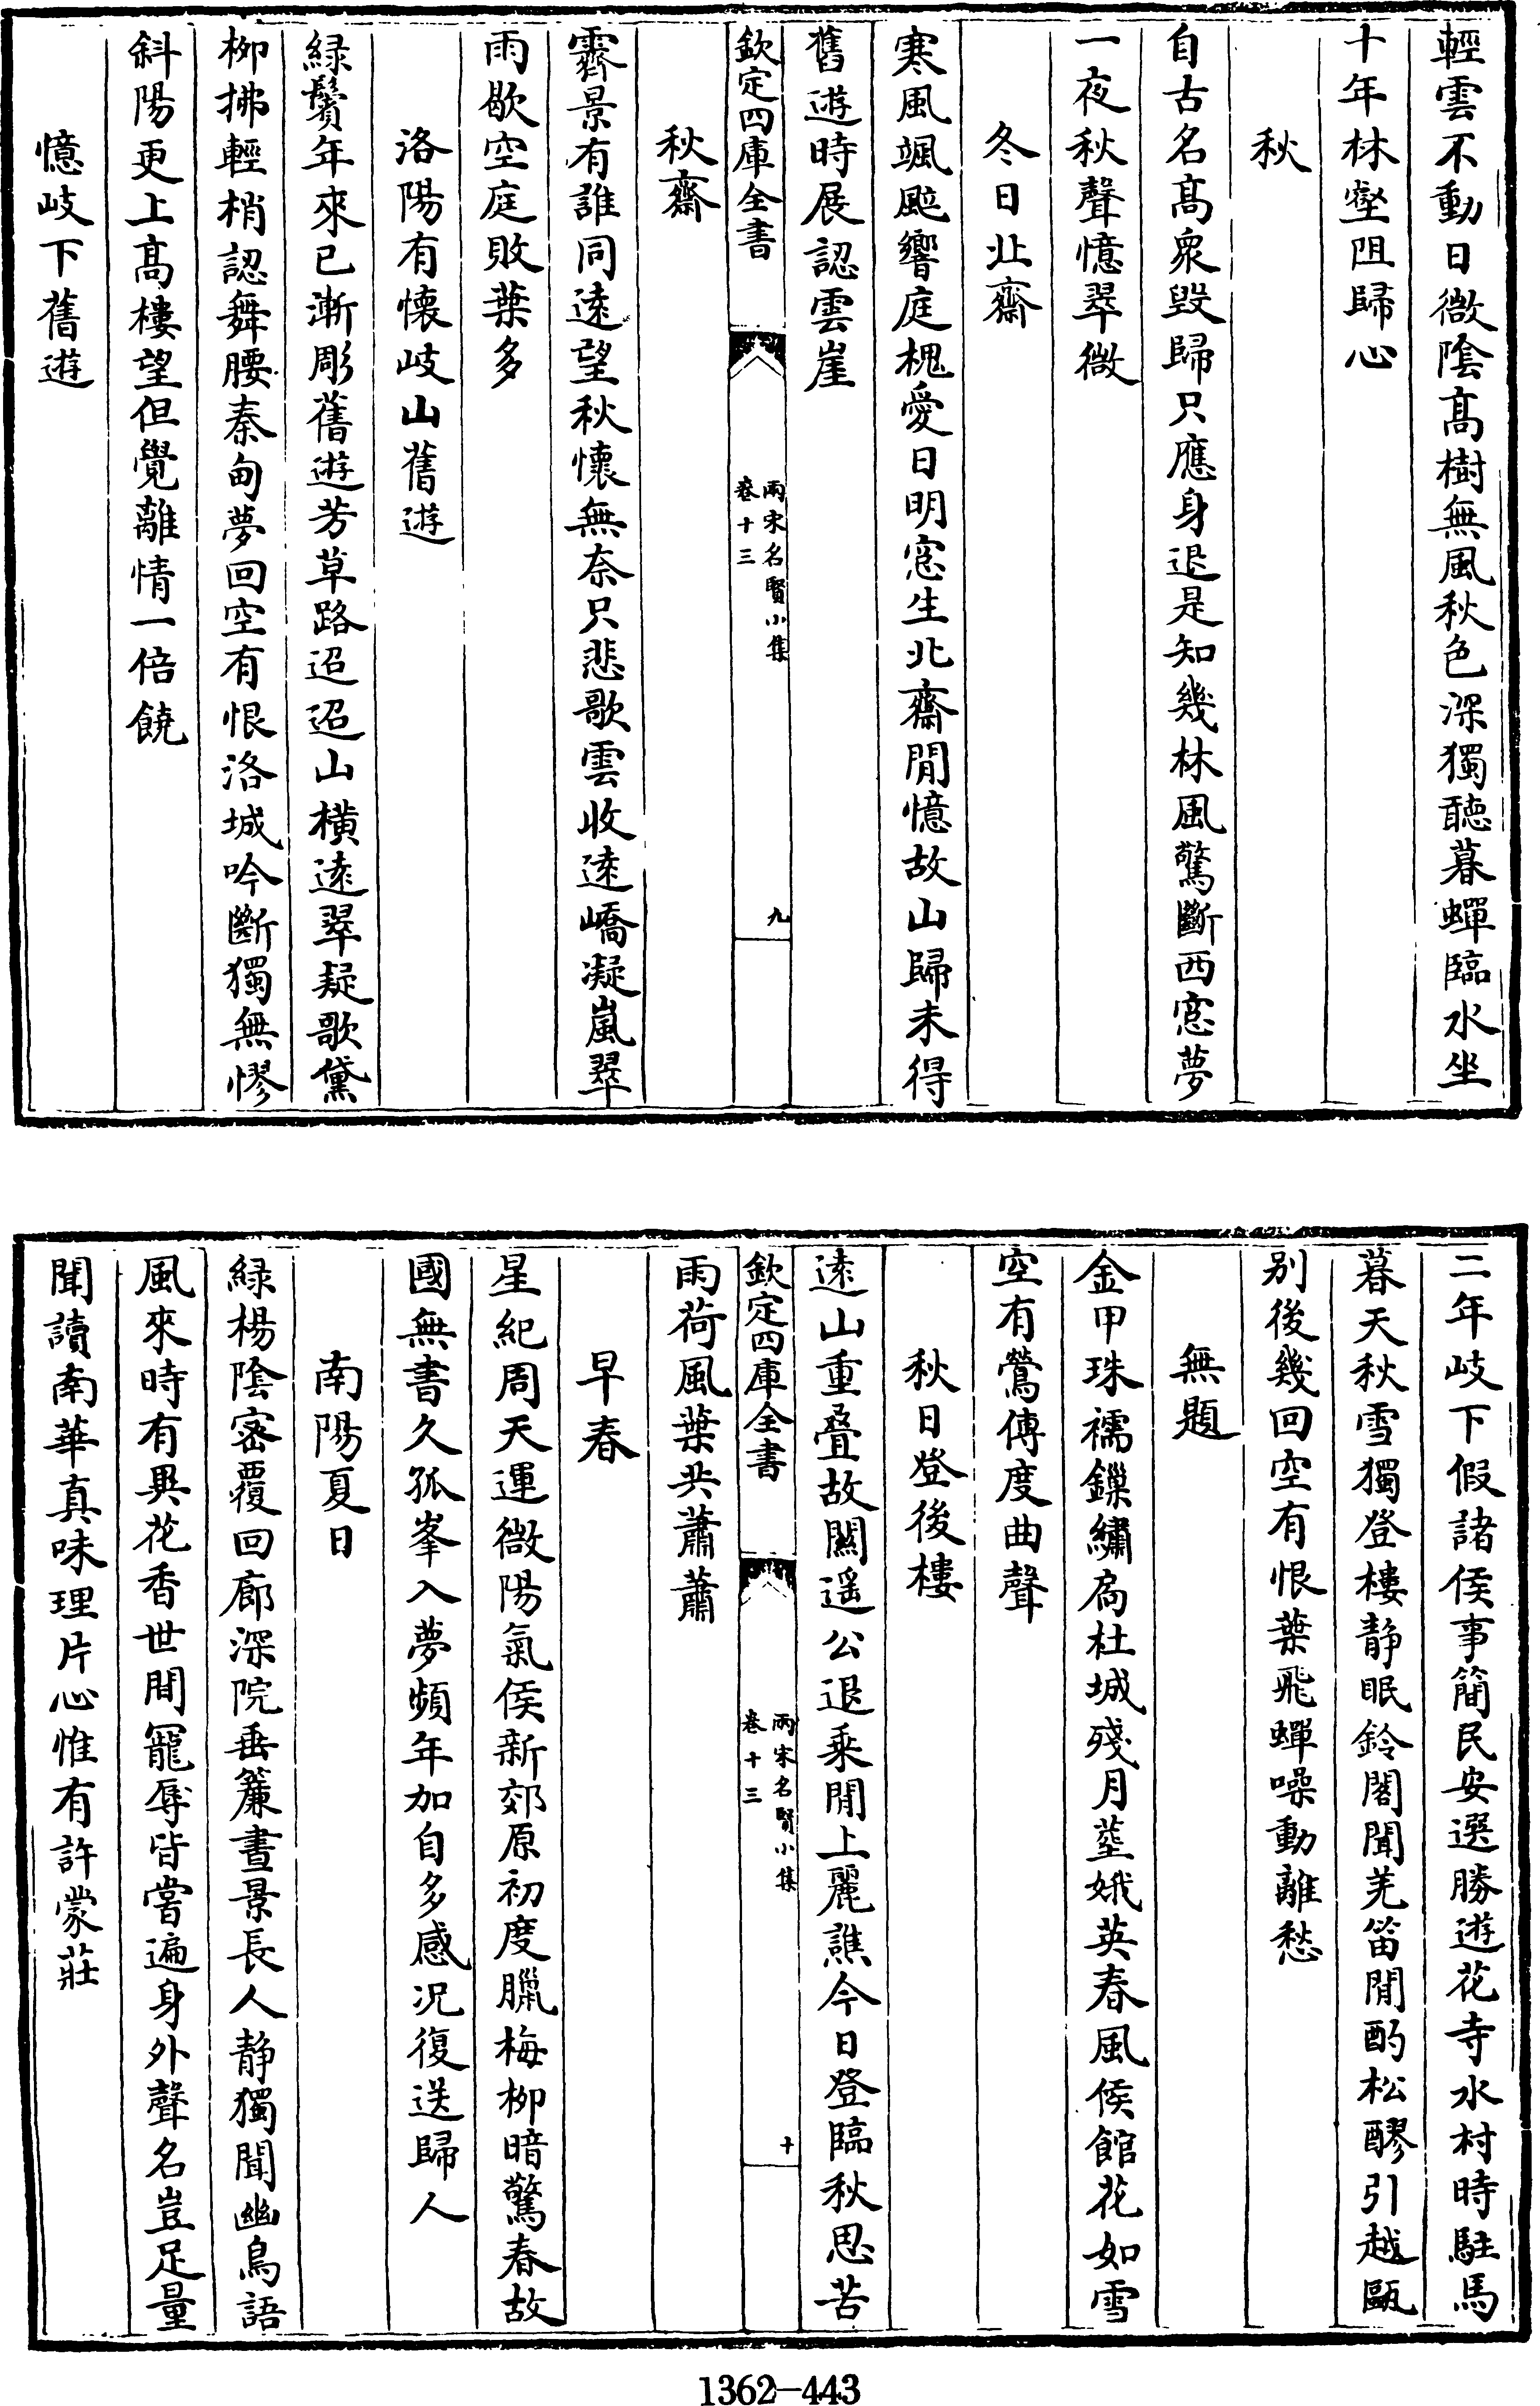 輕雲不動日微陰髙樹無風秋色深獨聽暮蟬臨水坐
十年林壑阻歸心
秋
自古名髙衆毁歸只應身退是知幾林風驚斷西窓夢
一夜秋聲憶翠微
冬日北齋
寒風颯颯響庭槐愛日明窓生北齋閒憶故山歸未得
舊遊時展認雲崖
欽定四庫全書
兩宋名賢小集
卷十三
九
秋齋
霽景有誰同逺望秋懷無奈只悲歌雲收逺嶠凝嵐翠
雨歇空庭敗葉多
洛陽有懷岐山舊遊
緑鬢年來已漸彫舊遊芳草路迢迢山横逺翠疑歌黛
栁拂輕梢認舞腰秦甸夢回空有恨洛城吟斷獨無憀
斜陽更上髙樓望但覺離情一倍饒
憶岐下舊遊
二年岐下假諸侯事簡民安選勝遊花寺水村時駐馬
暮天秋雪獨登樓静眠鈴閣聞羌笛閒酌松醪引越甌
别後幾回空有恨葉飛蟬噪動離愁
無題
金甲珠襦鏁繡扄杜城殘月塟娥英春風候館花如雪
空有鶯傳度曲聲
秋日登後樓
逺山重疊故闗遥公退乘閒上麗譙今日登臨秋思苦
欽定四庫全書
兩宋名賢小集
卷十三
十
雨荷風葉共蕭蕭
早春
星紀周天運微陽氣侯新郊原初度臘梅栁暗驚春故
國無書久孤峯入夢頻年加自多感况復送歸人
南陽夏日
緑楊陰宻覆回廊深院垂簾晝景長人静獨聞幽鳥語
風來時有異花香世間寵辱皆嘗遍身外聲名豈足量
聞讀南華真味理片心惟有許蒙莊
1362—443